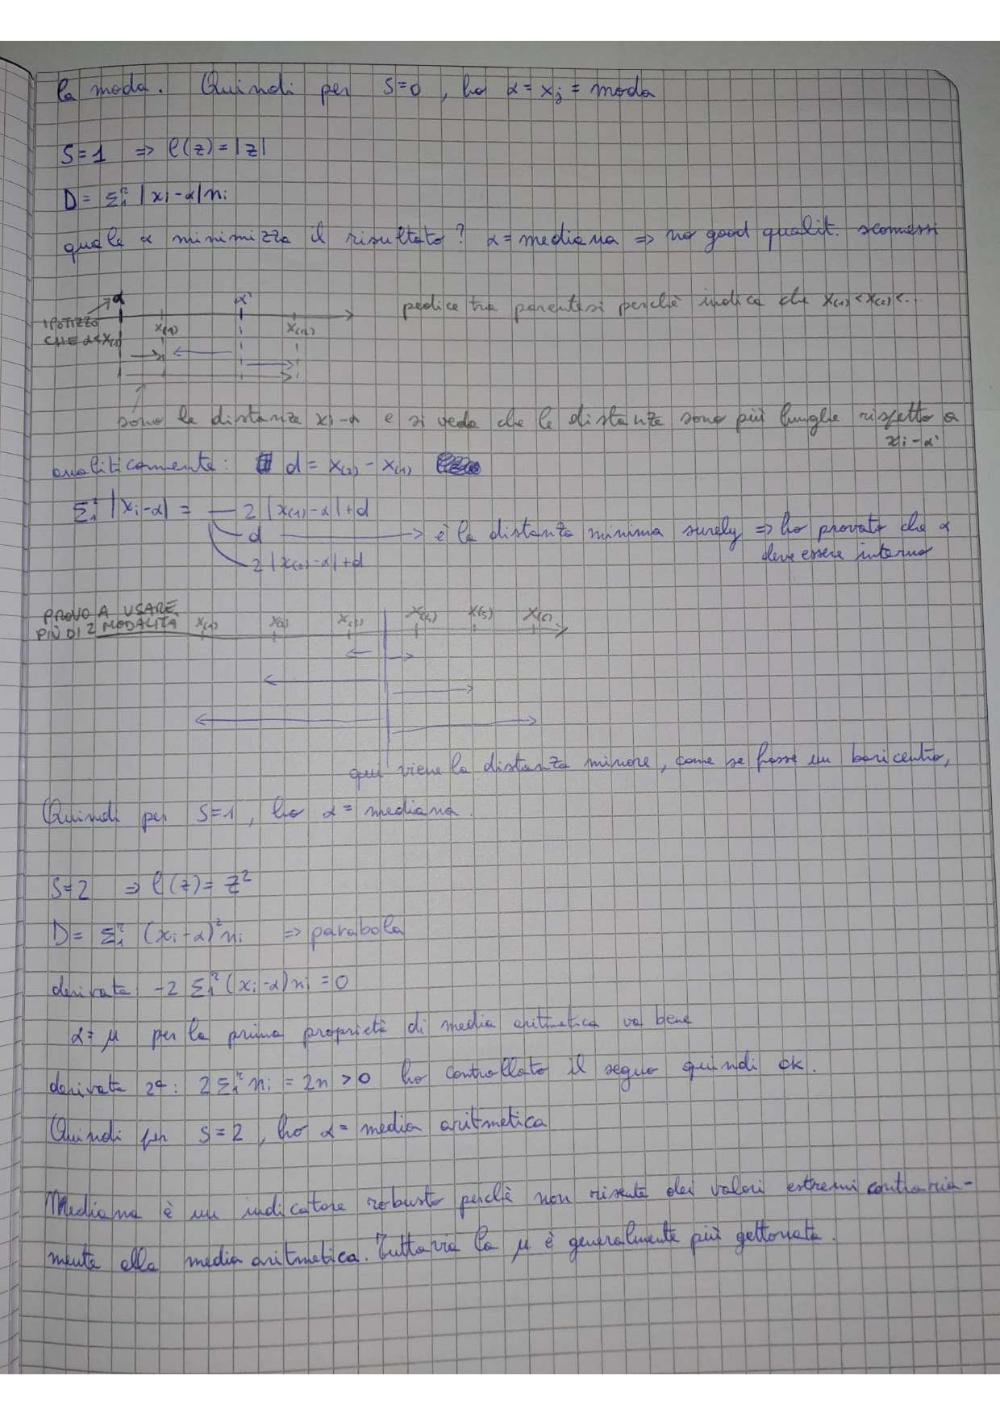 la moda. Quindi per S=0, ho α = xⱼ = moda
S=1 ⇒ ℓ(z)=|z|
D = Σᵢʳ |xᵢ-α|nᵢ
quale α minimizza il risultato? α=mediana ⇒ no good qualit. sconnessi
α α'
IPOTIZZO CHE α<X(1)
X(1) X(2)
pedice tra parentesi perchè indica che X(1)<X(2)<...
sono le distanze xᵢ-α e si vede che le distanze sono più lunghe rispetto a
xᵢ-α'
analiticamente: d = X(2) - X(1)
Σᵢ² |xᵢ-α| = 2|X(1)-α|+d
d → è la distanza minima surely ⇒ ho provato che α
2|X(2)-α|+d deve essere interno
PROVO A USARE
PIÙ DI 2 MODALITÀ X(1) X(2) X(3) X(4) X(5) X(6)
qui viene la distanza minore, come se fosse un baricentro,
Quindi per S=1, ho α= mediana.
S=2 ⇒ ℓ(z)= z²
D= Σᵢʳ (xᵢ-α)²nᵢ ⇒ parabola
derivata: -2 Σᵢʳ(xᵢ-α)nᵢ=0
α= μ per la prima proprietà di media aritmetica va bene
derivata 2ª: 2Σᵢʳ nᵢ = 2n > 0 ho controllato il segno quindi ok.
Quindi per S=2, ho α= media aritmetica
Mediana è un indicatore robusto perchè non risente dei valori estremi contraria-
mente alla media aritmetica. Tuttavia la μ è generalmente più gettonata.